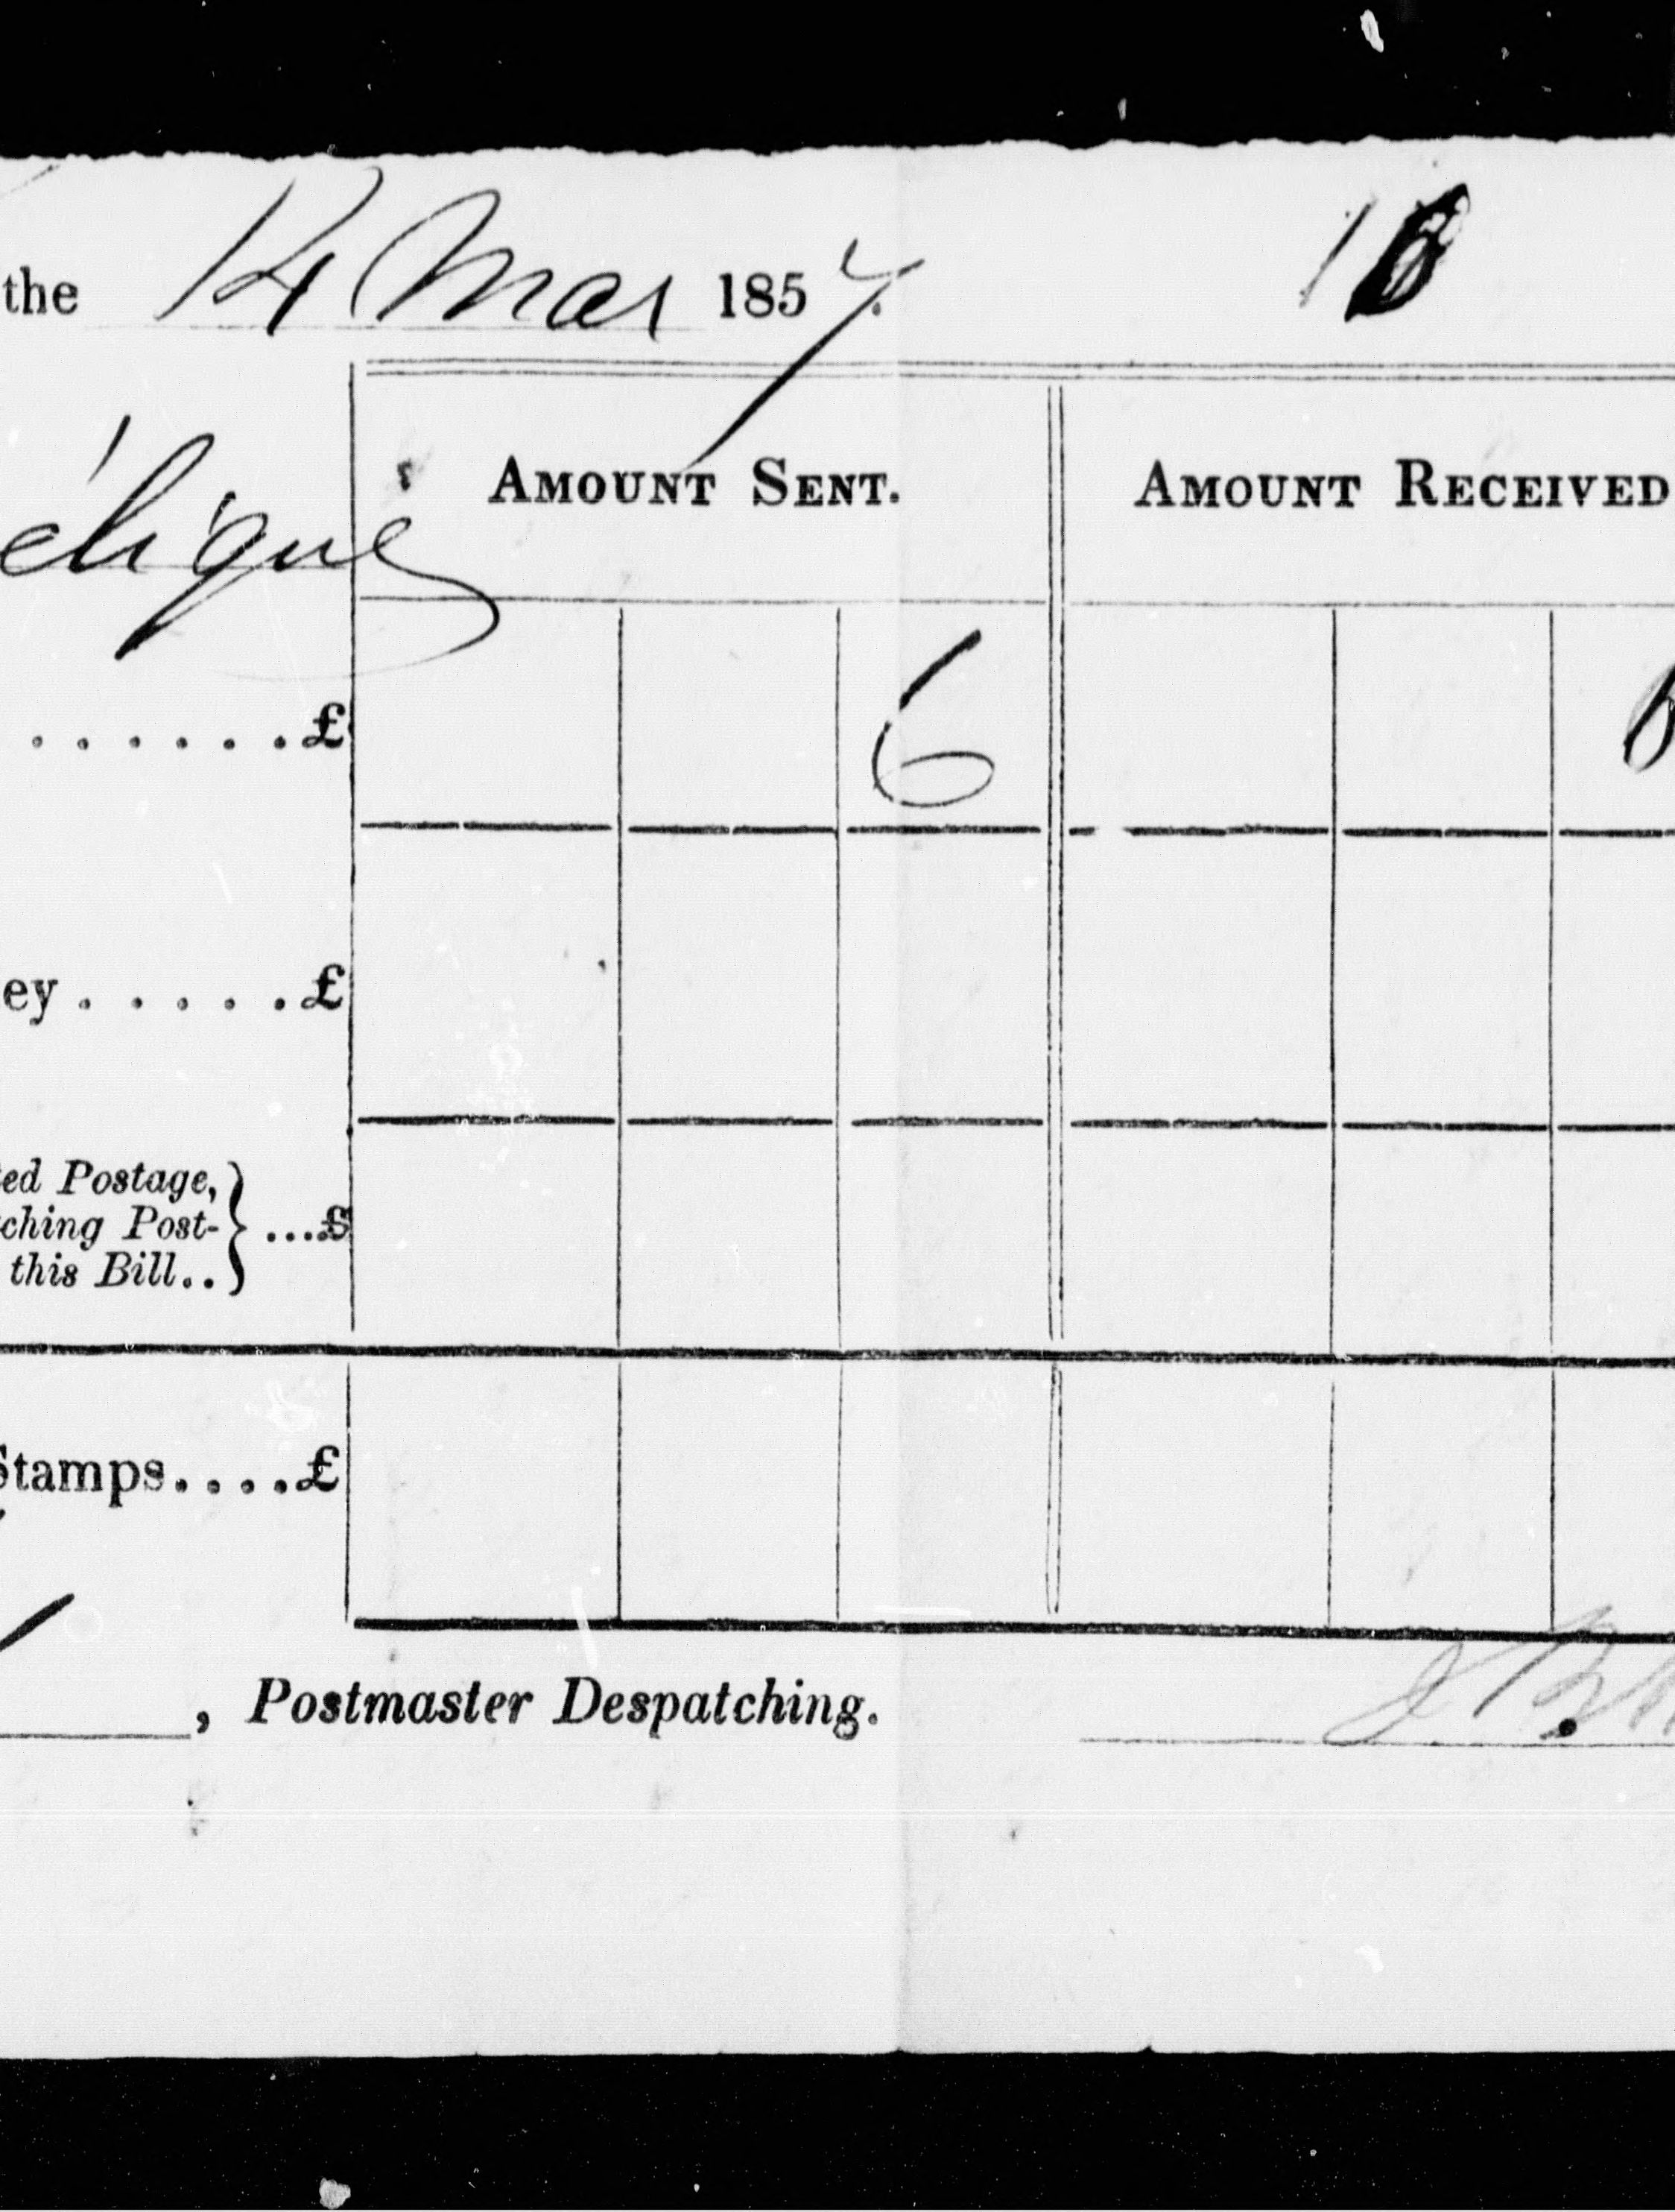 the 14 Mar 1857. 16
élique
AMOUNT SENT. AMOUNT RECEIVED
......£ 6 6
ey.....£
ed Postage,
ching Post- ...£
this Bill..
Stamps....£
, Postmaster Despatching.